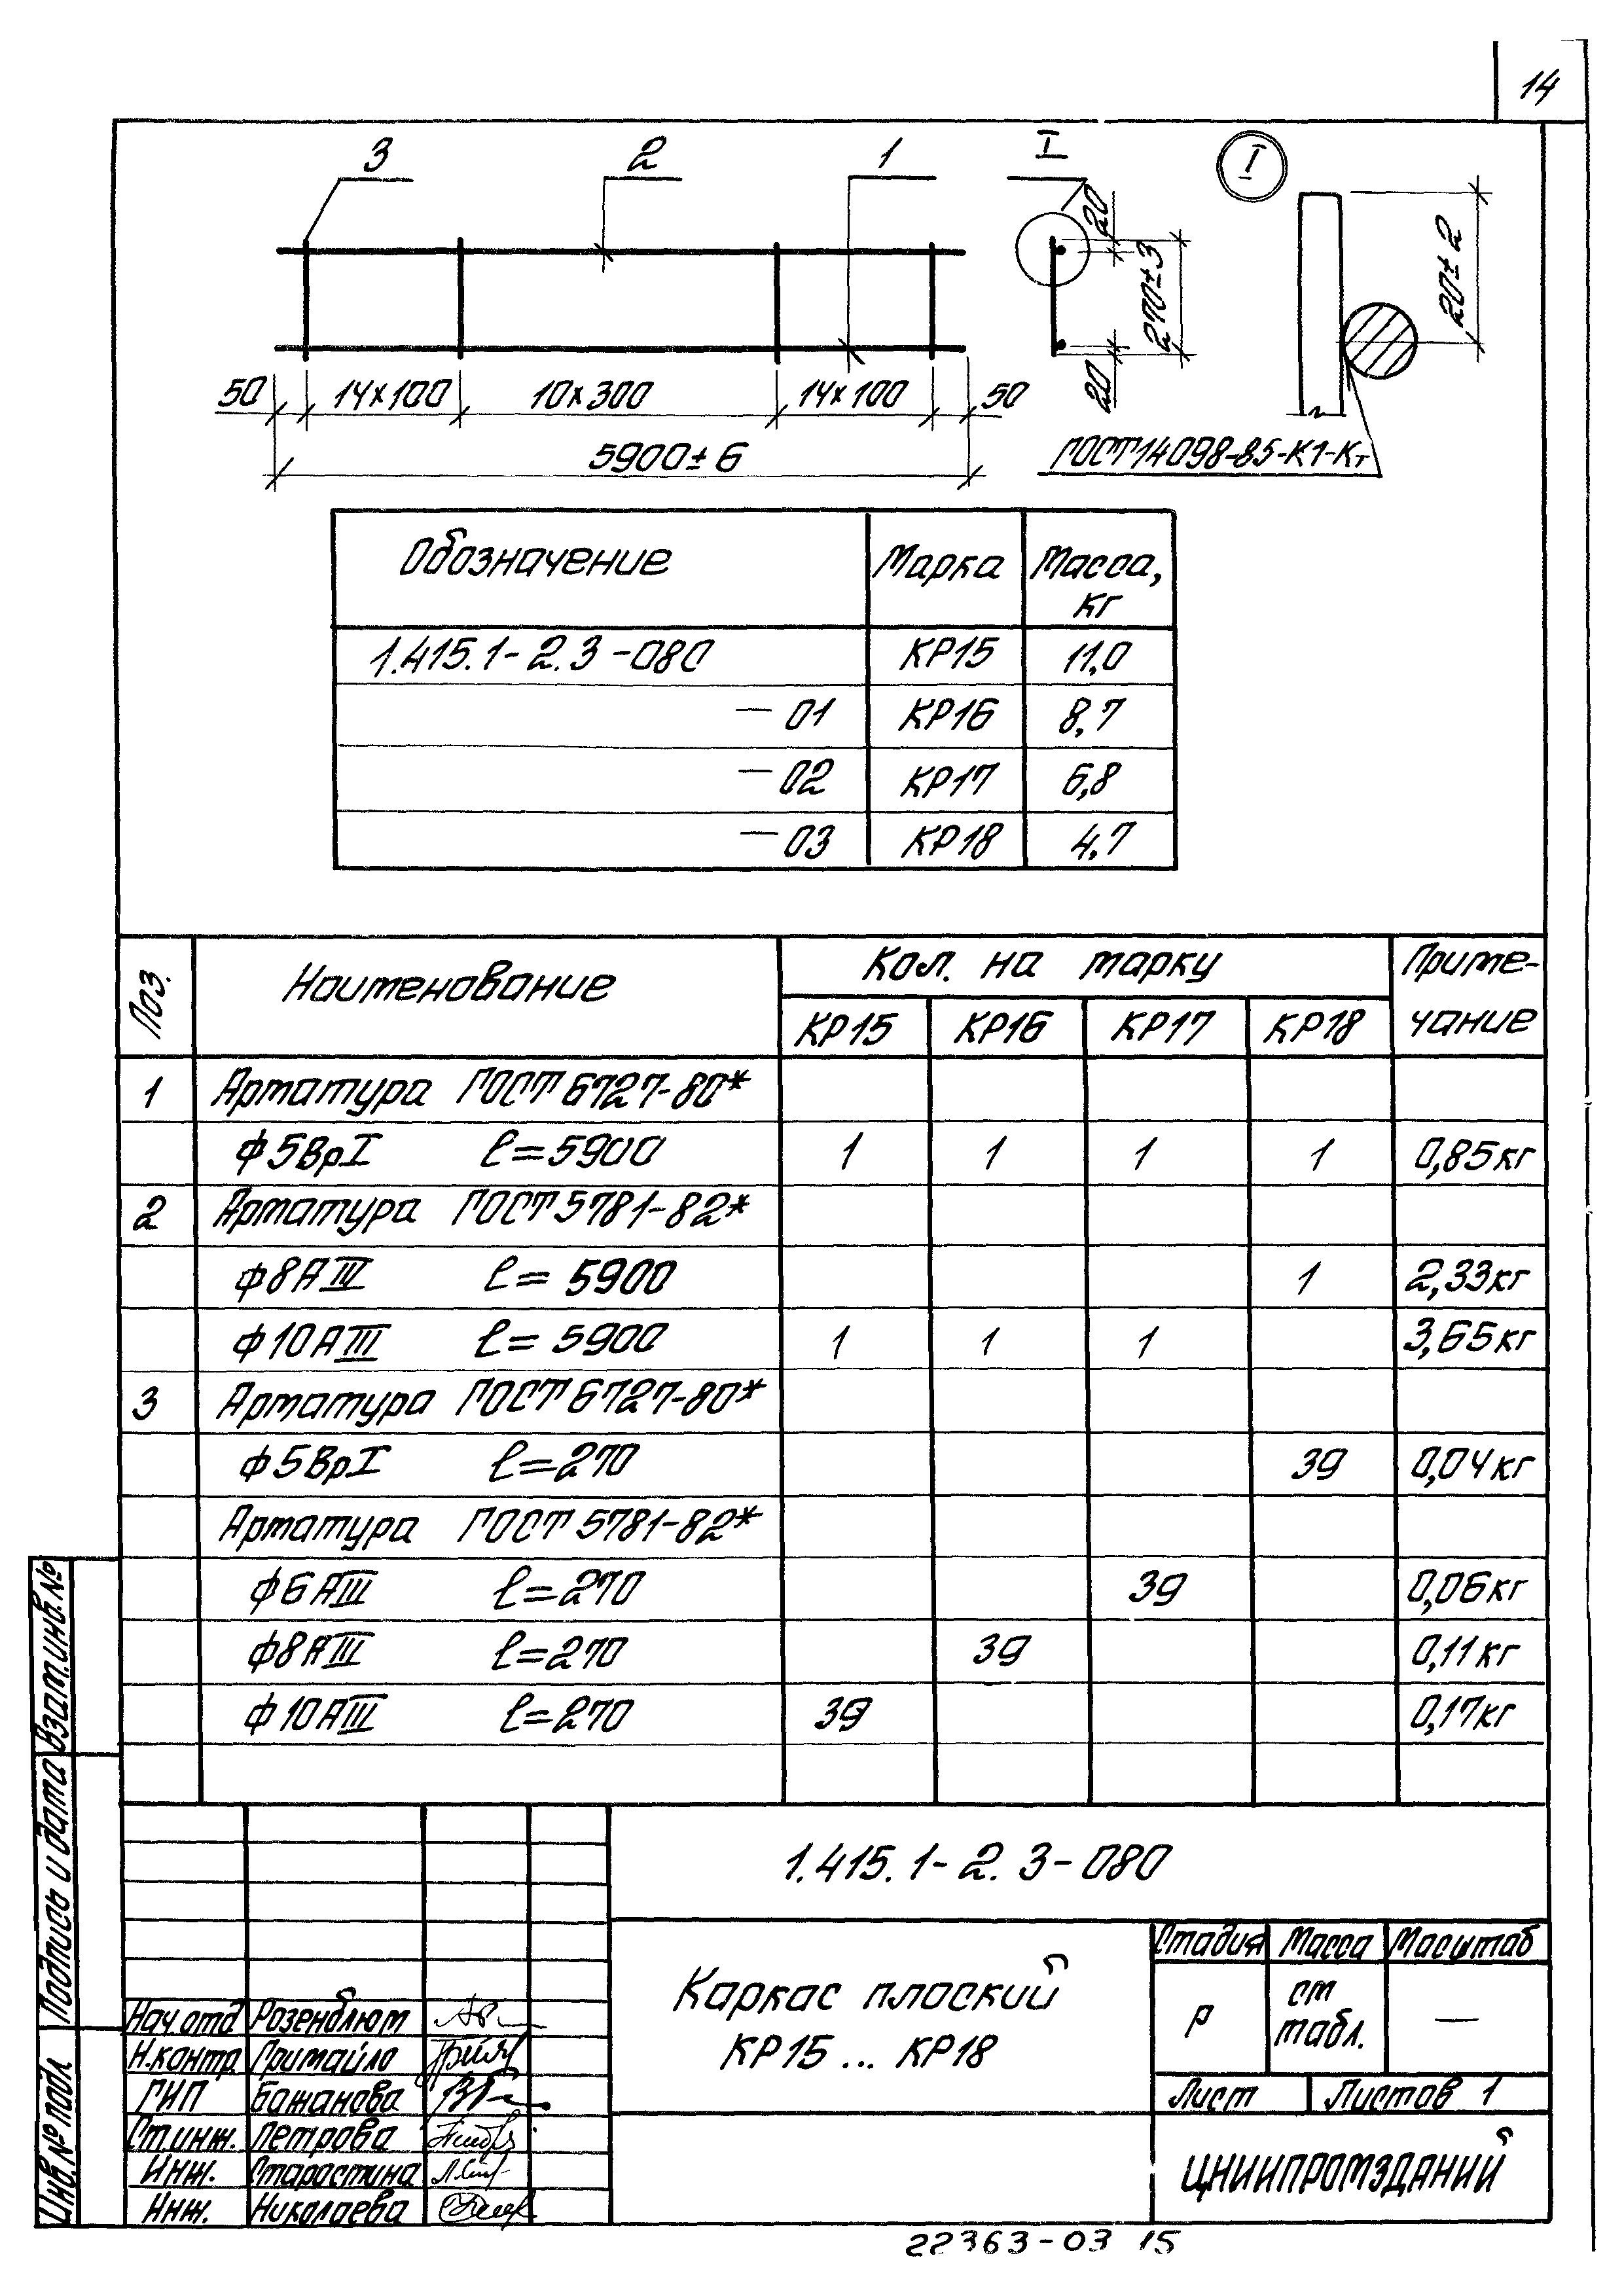 14
3 2 1 I I
20
270±3
20
20±2
50 14×100 10×300 14×100 50
5900±6
ГОСТ14098-85-К1-Кт
Обозначение Марка Масса, кг
1.415.1-2.3-080 КР15 11,0
—01 КР16 8,7
—02 КР17 6,8
—03 КР18 4,7
Поз. Наименование Кол. на марку Приме-
чание
КР15 КР16 КР17 КР18
1 Арматура ГОСТ 6727-80*
ф5ВрI ℓ=5900 1 1 1 1 0,85кг
2 Арматура ГОСТ 5781-82*
ф8АIII ℓ=5900 1 2,33кг
ф10АIII ℓ=5900 1 1 1 3,65кг
3 Арматура ГОСТ 6727-80*
ф5ВрI ℓ=270 39 0,04кг
Арматура ГОСТ 5781-82*
ф6АIII ℓ=270 39 0,06кг
ф8АIII ℓ=270 39 0,11кг
ф10АIII ℓ=270 39 0,17кг
Взам.инв.№
Подпись и дата
Инв.№ подл
1.415.1-2.3-080
Каркас плоский
КР15...КР18
Стадия Масса Масштаб
Р см табл. —
Лист Листов 1
ЦНИИПРОМЗДАНИЙ
Нач.отд Розенблюм
Н.контр. Гримайло
ГИП Бажанова
Ст.инж. Петрова
Инж. Старостина
Инж. Николаева
22363-03 15